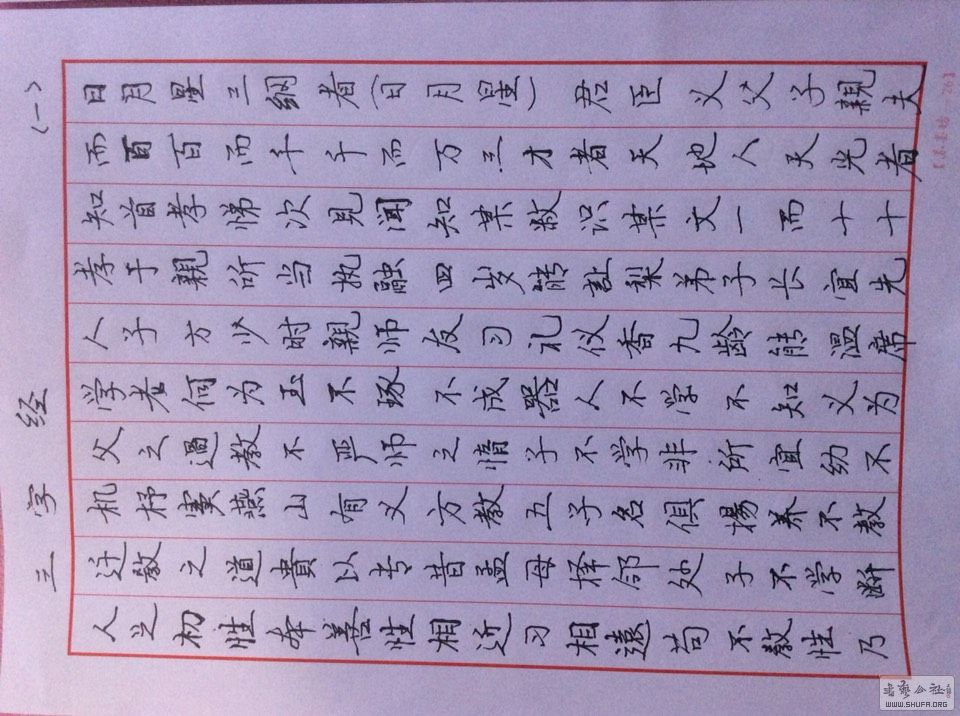 三字经(一)
人之初性本善性相近习相遠苟不教性乃
迁教之道貴以专昔孟母择邻处子不学断
机杼窦燕山有义方教五子名俱揚养不教
父之過教不严师之惰子不学非所宜幼不
学老何为玉不琢不成器人不学不知义为
人子方少时親师友习礼仪香九龄能温席
孝于親所当执融四岁能让梨弟子长宜先
知首孝悌次見闻知某数识某文一而十十
而百百而千千而万三才者天地人天光者
日月星三纲者(日月星)君臣义父子親夫
書藝公社
WWW.SHUFA.ORG